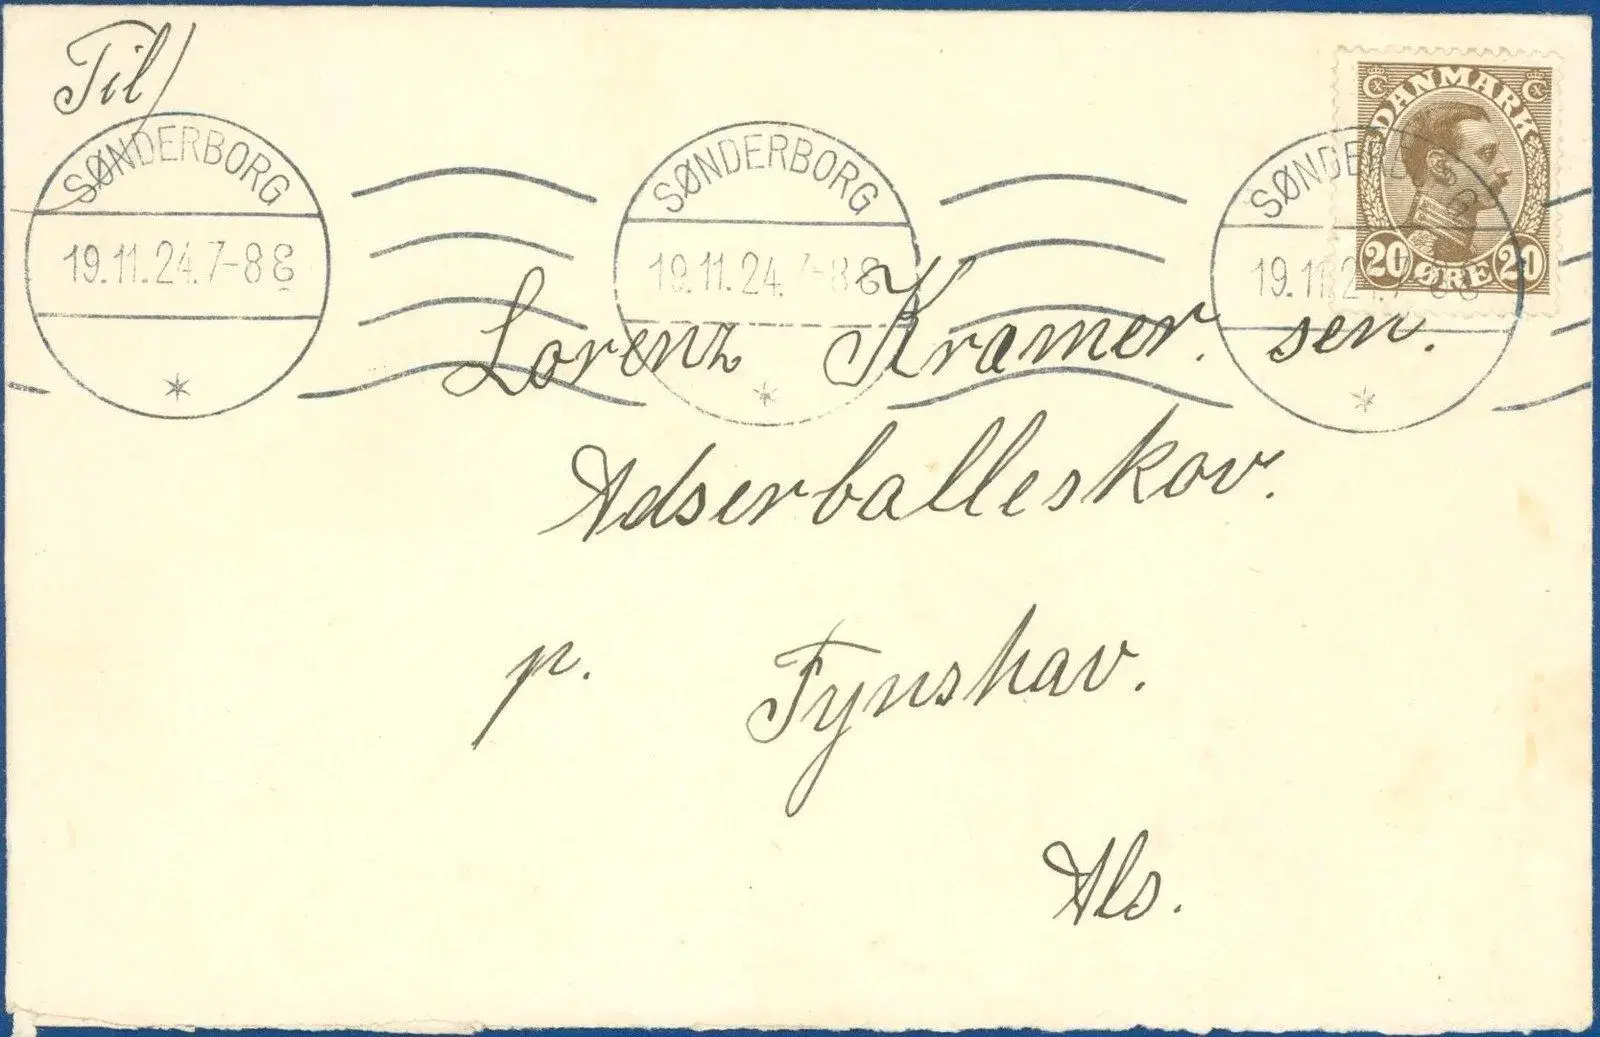 Til
DANMARK
20 ØRE 20
SØNDERBORG
19.11.24.7-8 E
SØNDERBORG
19.11.24. 7-8 E
SØNDERBORG
19.11.24.7-8 E
Lorenz Kramer. sen.
Adserballeskov.
p. Fynshav.
Als.